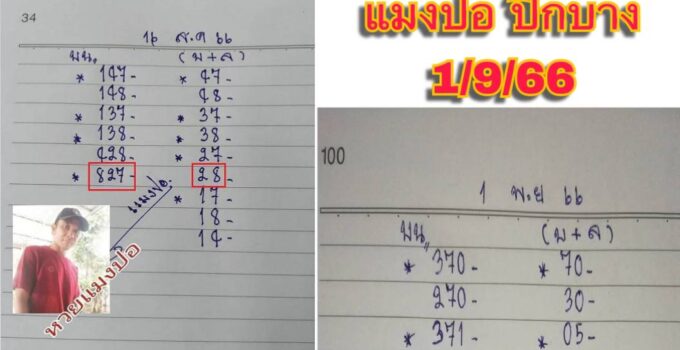 34
16 ส.ค 66
บน (บ+ล)
* 147- * 47-
148- 48-
* 137- * 37-
* 138- * 38-
428- * 27-
* 827- 28-
* 17-
18-
14-
แมงปอ.
หวยแมงปอ
แมงปอ ปีกบาง
1/9/66
100
1 พ.ย 66
บน (บ+ล)
* 370- * 70-
270- 30-
* 371- * 05-